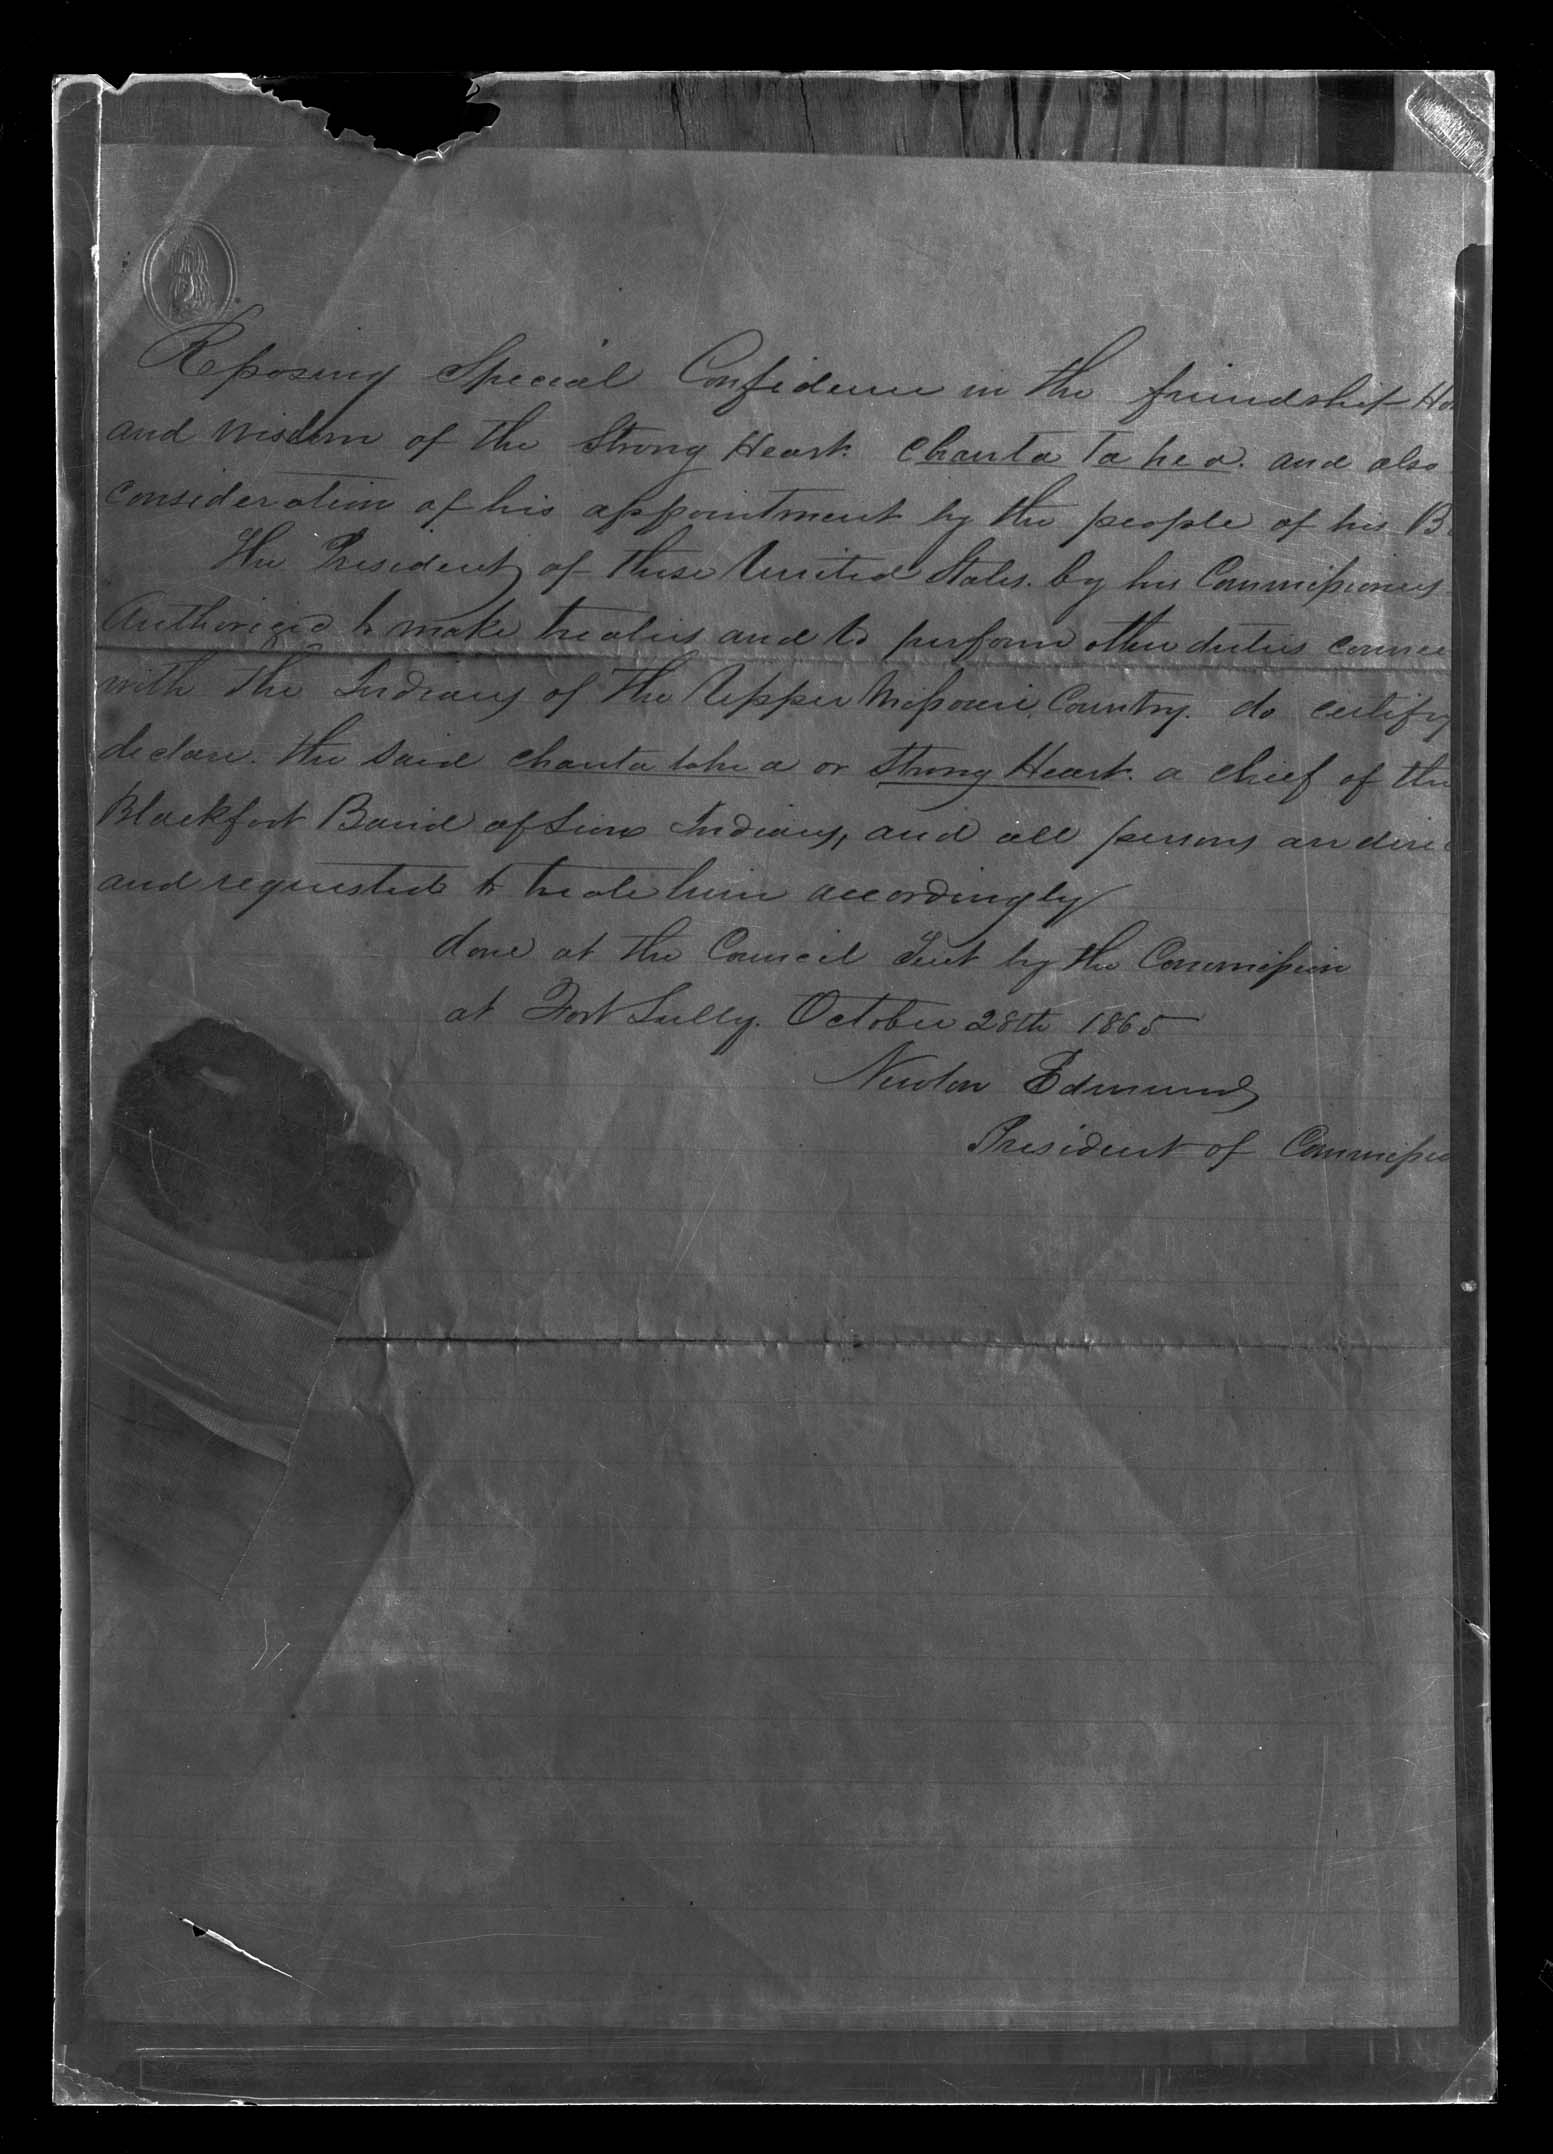 Reposing Special Confidence in the friendship Ho
and wisdom of the Strong Heart. Chanta Ta he a. and also
consideration of his appointment by the people of his B
The President of these United States. by his Commissioners
Authorized to make treaties and to perform other duties connec
with the Indians of the Upper Missouri Country. do certify
declare. the said Chanta tahe a or Strong Heart. a chief of the
Blackfoot Band of Sioux Indians, and all persons are direc
and requested to treate him accordingly
done at the Council Tent by the Commission
at Fort Sully. October 28th 1865
Newton Edmunds
President of Commissio